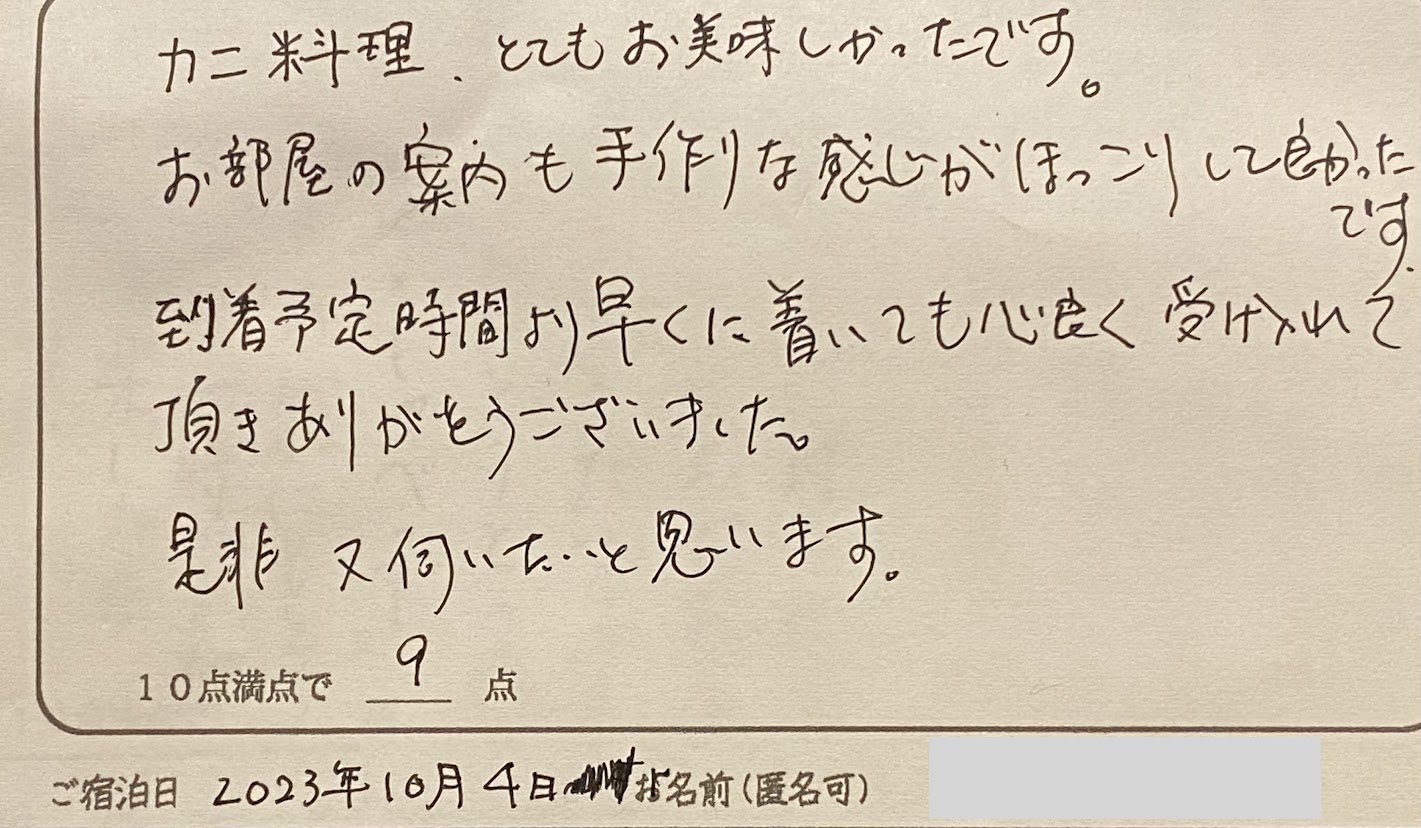 カニ料理、とてもお美味しかったです。
お部屋の案内も手作りな感じがほっこりして良かった
です.
到着予定時間より早くに着いても心良く受け入れて
頂きありがとうございました。
是非 又伺いたいと思います。
10点満点で 9 点
ご宿泊日 2023年10月4日 お名前(匿名可)